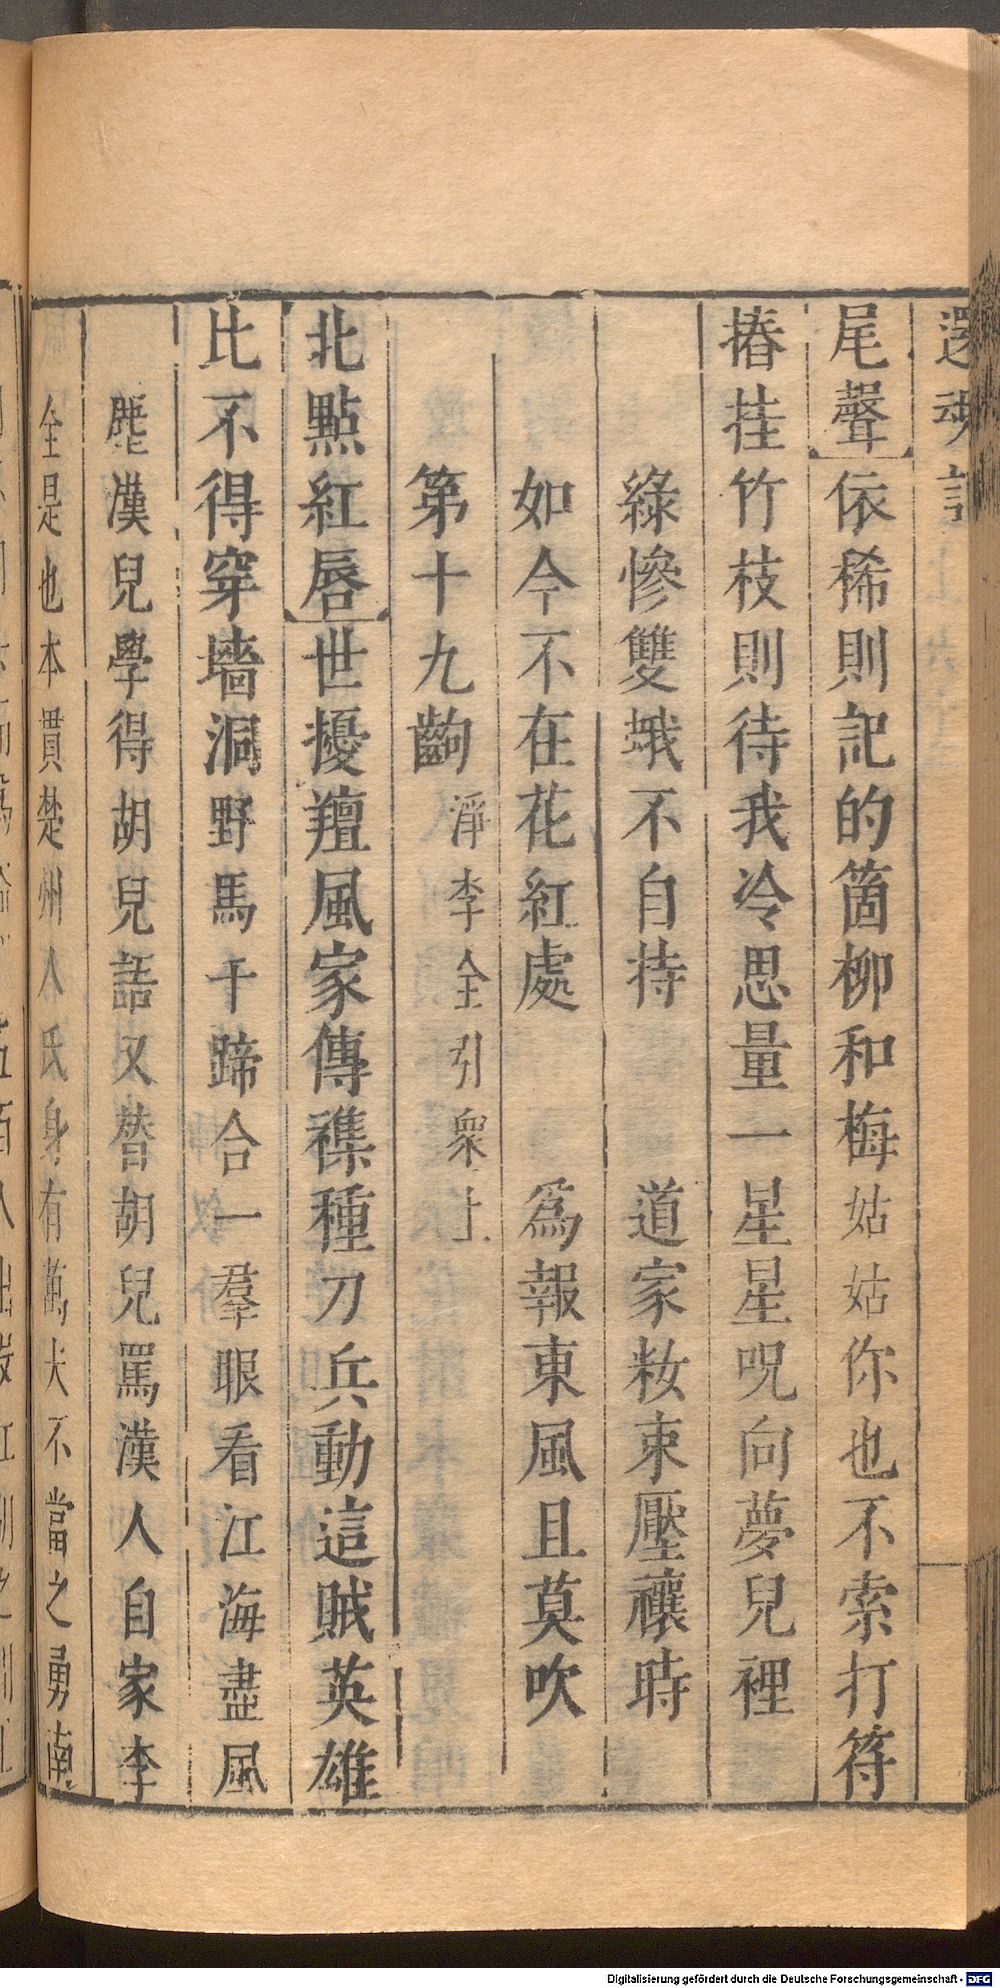 還魂記
尾聲依稀則記的箇柳和梅姑姑你也不索打符
摏挂竹枝則待我冷思量一星星呪向夢兒裡
綠慘雙蛾不自持 道家粧束壓禳時
如今不在花紅處 爲報東風且莫吹
第十九齣 淨李全引衆上
北點紅唇世擾羶風家傳襍種刀兵動這賊英雄
比不得穿墻洞野馬千蹄合一羣眼看江海盡風
塵漢兒學得胡兒語又替胡兒罵漢人自家李
全是也本貫楚州人氏身有萬夫不當之勇南
Digitalisierung gefördert durch die Deutsche Forschungsgemeinschaft - DFG